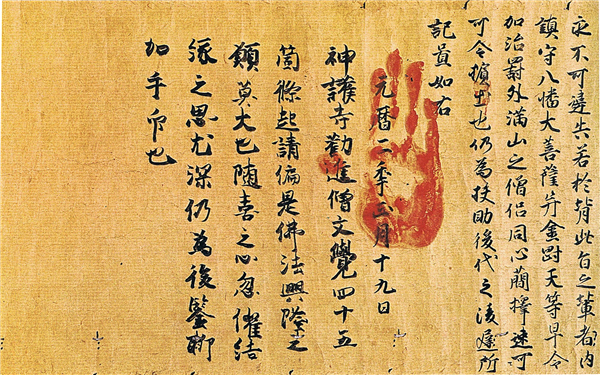 永不可違失若於背此旨之輩者内
鎮守八幡大菩薩并金剛天等早令
加治罰外満山之僧侶同心簡擇速可
可令擯出也仍為扶助後代之淩遅所
記置如右
元暦二年正月十九日
神護寺勸進僧文覺四十五
箇條起請偏是佛法興隆之
願莫大也隨喜之心忽催結
縁之思尤深仍為後鑒聊
加手印也